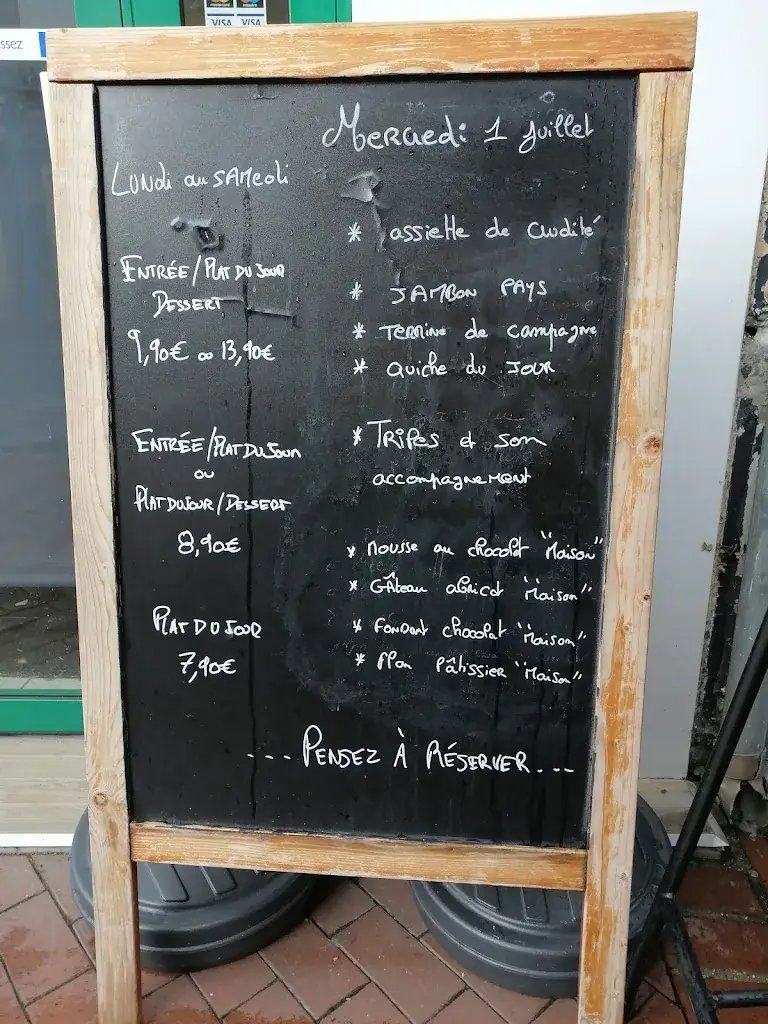 ssez
VISA VISA
Mercredi 1 Juillet
Lundi au Samedi
Entrée/Plat du Jour
Dessert
9,90€ ou 13,90€
Entrée/Plat du Jour
ou
Plat du Jour/Dessert
8,90€
Plat du Jour
7,90€
* assiette de crudité
* Jambon Pays
* Terrine de campagne
* Quiche du Jour
* Tripes et son
accompagnement
* Mousse au chocolat "Maison"
* Gâteau abricot "Maison"
* Fondant chocolat "Maison"
* Flan Pâtissier "Maison"
.... Pensez À Réserver...